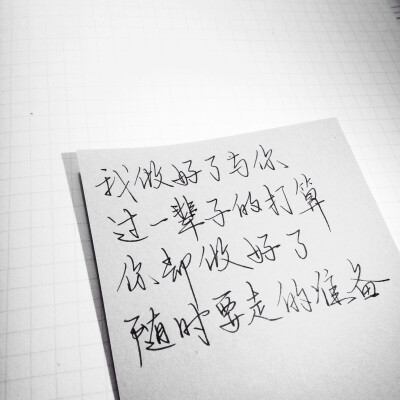 我做好了与你
过一辈子的打算
你却做好了
随时要走的准备